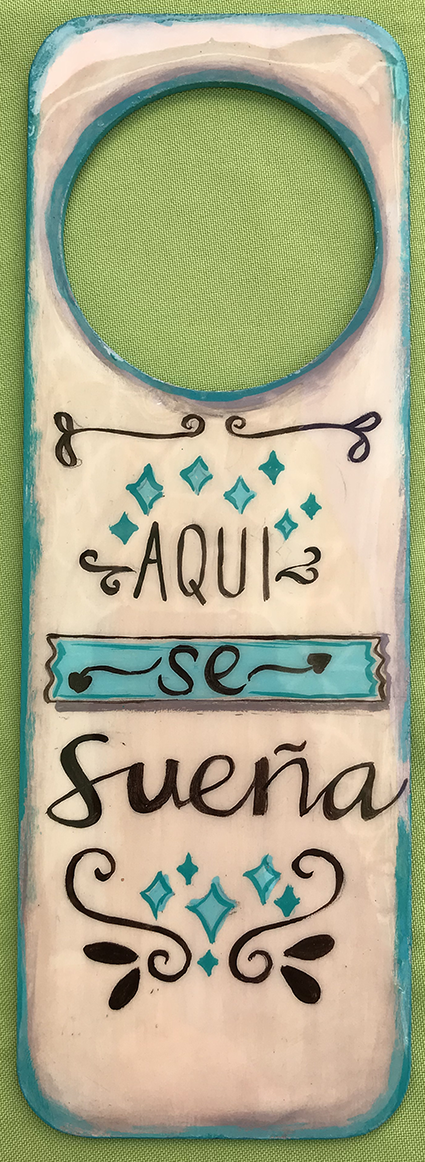 AQUI
se
Sueña